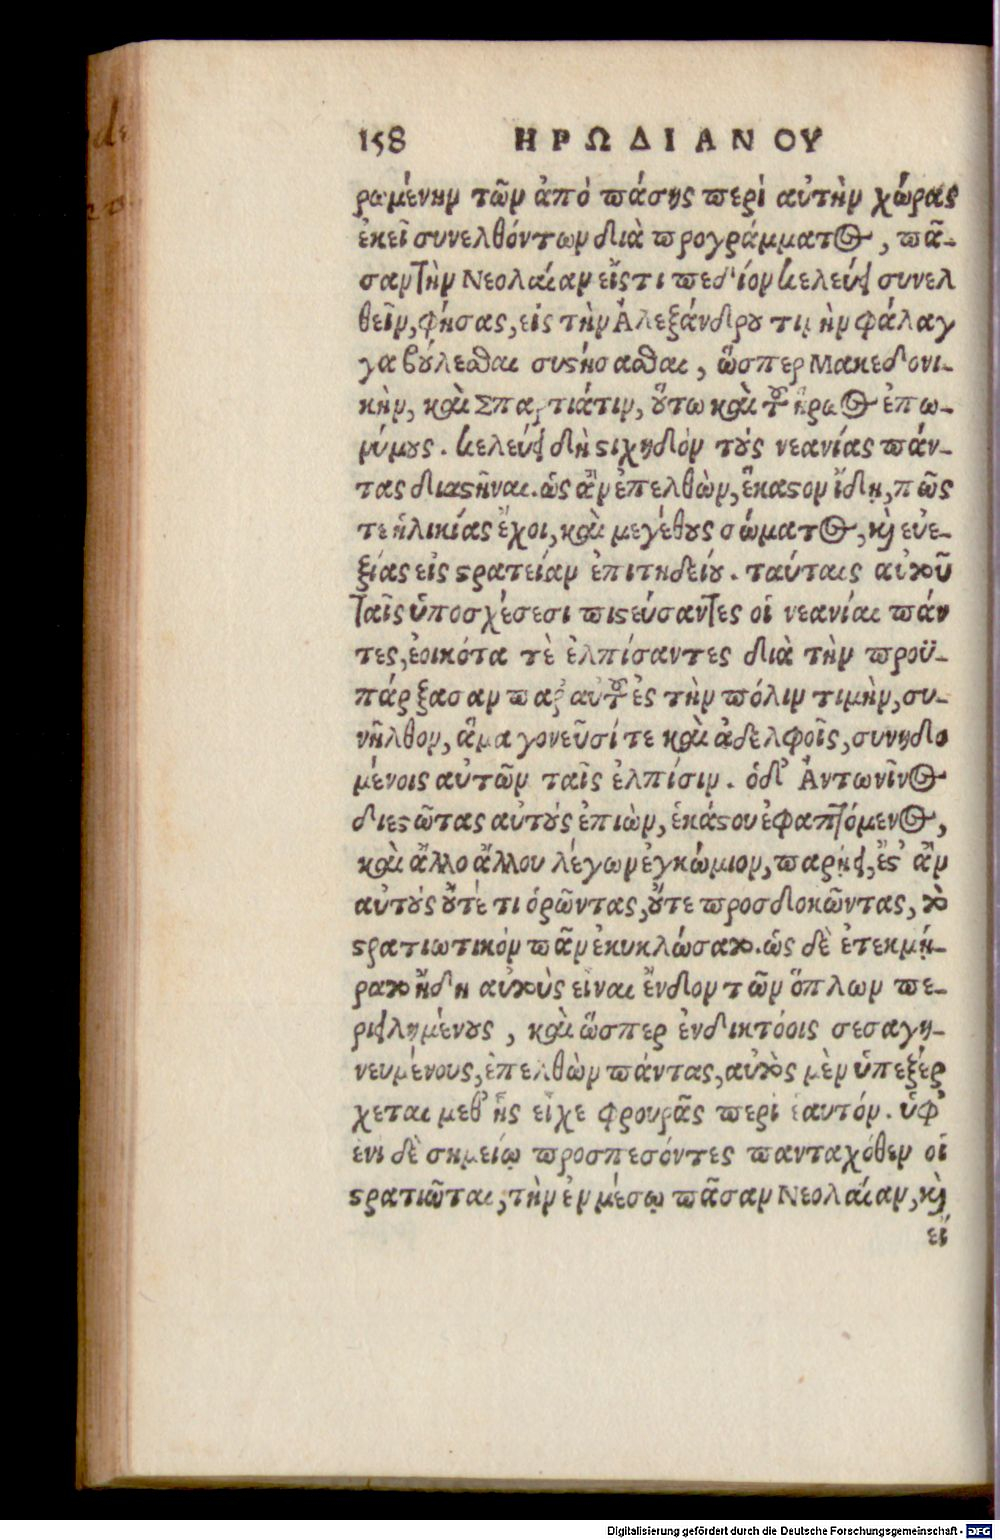 158 ΗΡΩΔΙΑΝΟΥ
ρωμένην τῶν ἀπὸ πάσης περὶ αὐτὴν χώρας
ἐκεῖ συνελθόντων διὰ προγράμματος, πᾶ-
σαν τὴν Νεολαίαν εἴς τι πεδίον κελεύει συνελ
θεῖν, φήσας, εἰς τὴν Ἀλεξάνδρου τιμὴν φάλαγ
γα βούλεσθαι συστήσασθαι, ὥσπερ Μακεδονι-
κὴν, καὶ Σπαρτιάτιν, οὕτω καὶ τοῦ ἥρωος ἐπω-
νύμους. κελεύει δὴ στιχηδὸν τοὺς νεανίας πάν-
τας διαστῆναι. ὡς ἂν ἐπελθὼν, ἕκαστον ἴδῃ, πῶς
τε ἡλικίας ἔχοι, καὶ μεγέθους σώματος, καὶ εὐε-
ξίας εἰς στρατείαν ἐπιτηδείου. ταύταις αὐτοῦ
ταῖς ὑποσχέσεσι πιστεύσαντες οἱ νεανίαι πάν
τες, ἐοικότα τὲ ἐλπίσαντες διὰ τὴν προϋ-
πάρξασαν παρ' αὐτοῦ ἐς τὴν πόλιν τιμὴν, συ-
νῆλθον, ἅμα γονεῦσί τε καὶ ἀδελφοῖς, συνηδο
μένοις αὐτῶν ταῖς ἐλπίσιν. ὁ δ' Ἀντωνῖνος
διεστῶτας αὐτοὺς ἐπιὼν, ἑκάστου ἐφαπτόμενος,
καὶ ἄλλο ἄλλου λέγων ἐγκώμιον, παρῄει, ἔστ' ἂν
αὐτοὺς οὔτέ τι ὁρῶντας, οὔτε προσδοκῶντας, τὸ
στρατιωτικὸν πᾶν ἐκυκλώσατο. ὡς δὲ ἐτεκμή-
ρατο ἤδη αὐτοὺς εἶναι ἔνδον τῶν ὅπλων πε-
ριειλημένους, καὶ ὥσπερ ἐν δικτύοις σεσαγη-
νευμένους, ἐπελθὼν πάντας, αὐτὸς μὲν ὑπεξέρ
χεται μεθ' ἧς εἶχε φρουρᾶς περὶ ἑαυτόν. ὑφ'
ἑνὶ δὲ σημείῳ προσπεσόντες πανταχόθεν οἱ
στρατιῶται, τὴν ἐν μέσῳ πᾶσαν Νεολαίαν, καὶ
εἴ
Digitalisierung gefördert durch die Deutsche Forschungsgemeinschaft - DFG